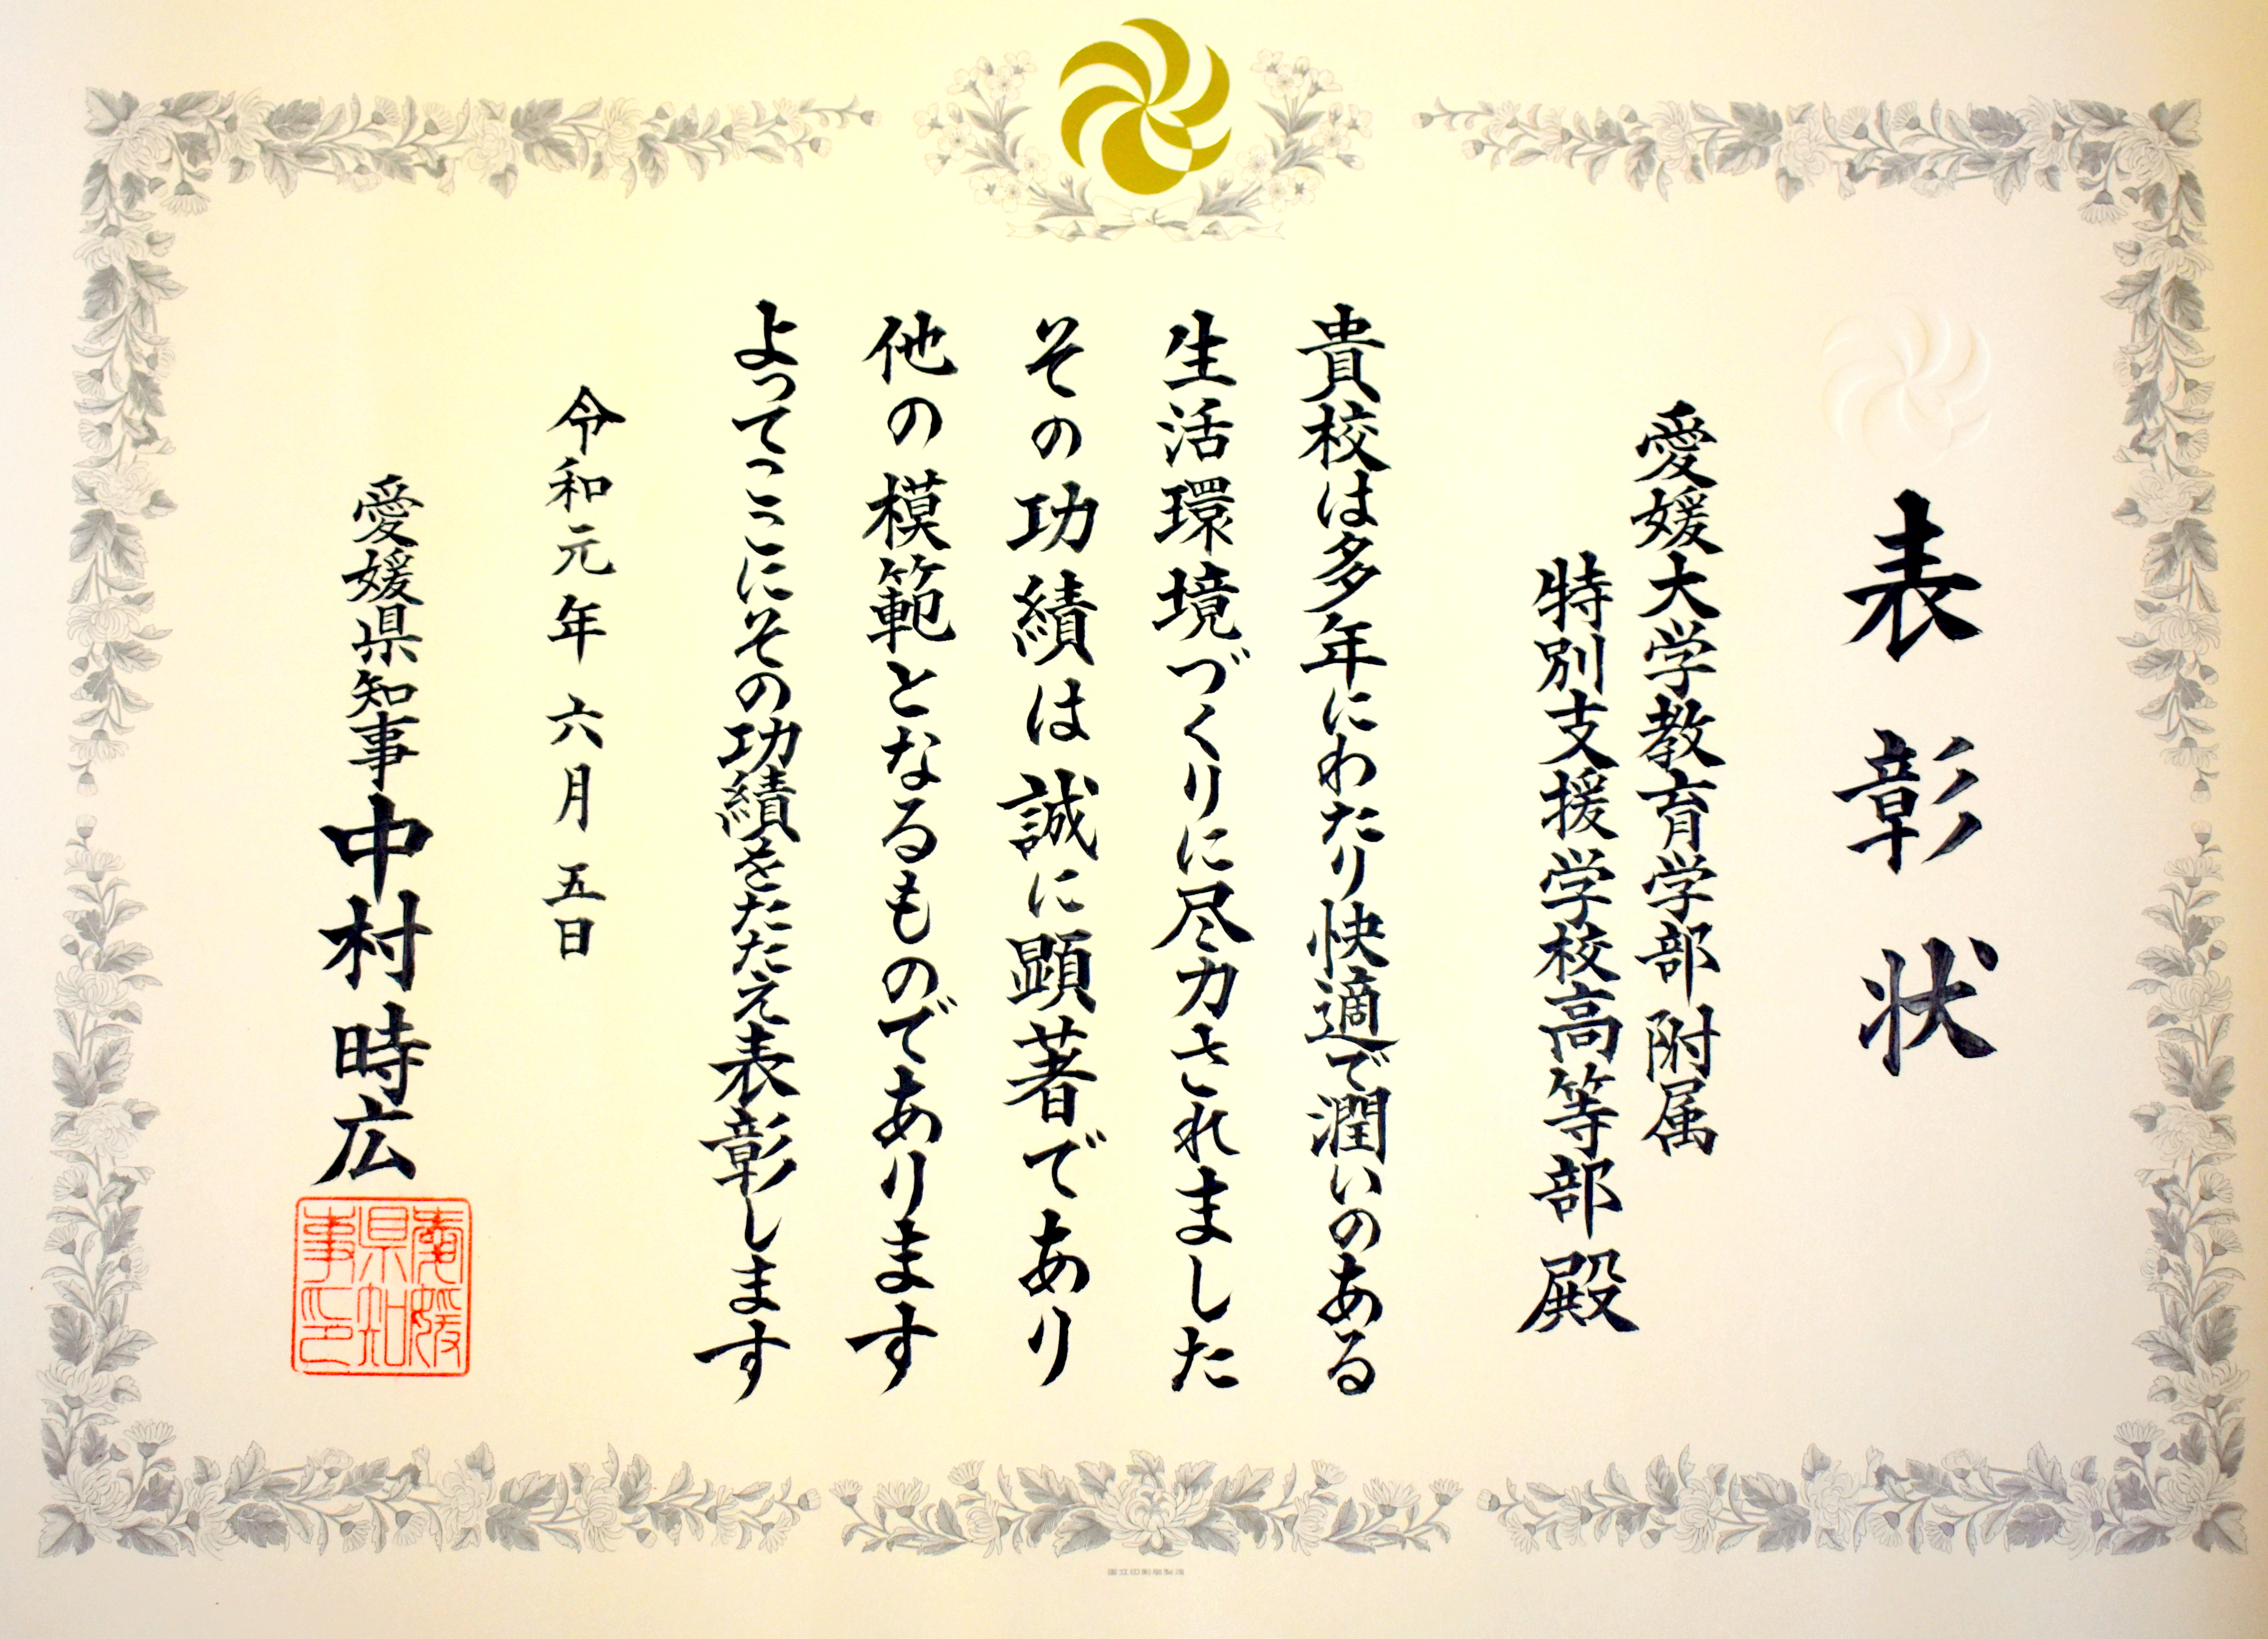 表彰状
愛媛大学教育学部附属
特別支援学校高等部殿
貴校は多年にわたり快適で潤いのある
生活環境づくりに尽力されました
その功績は誠に顕著であり
他の模範となるものであります
よってここにその功績をたたえ表彰します
令和元年六月五日
愛媛県知事中村時広
愛媛
県知
事印
国立印刷局製造